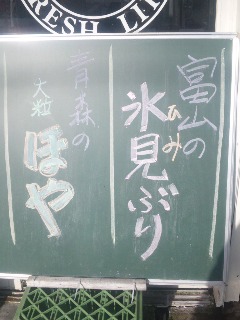 FRESH LI
富山の
氷見ぶり
ひみ
青森の
大粒
ほや